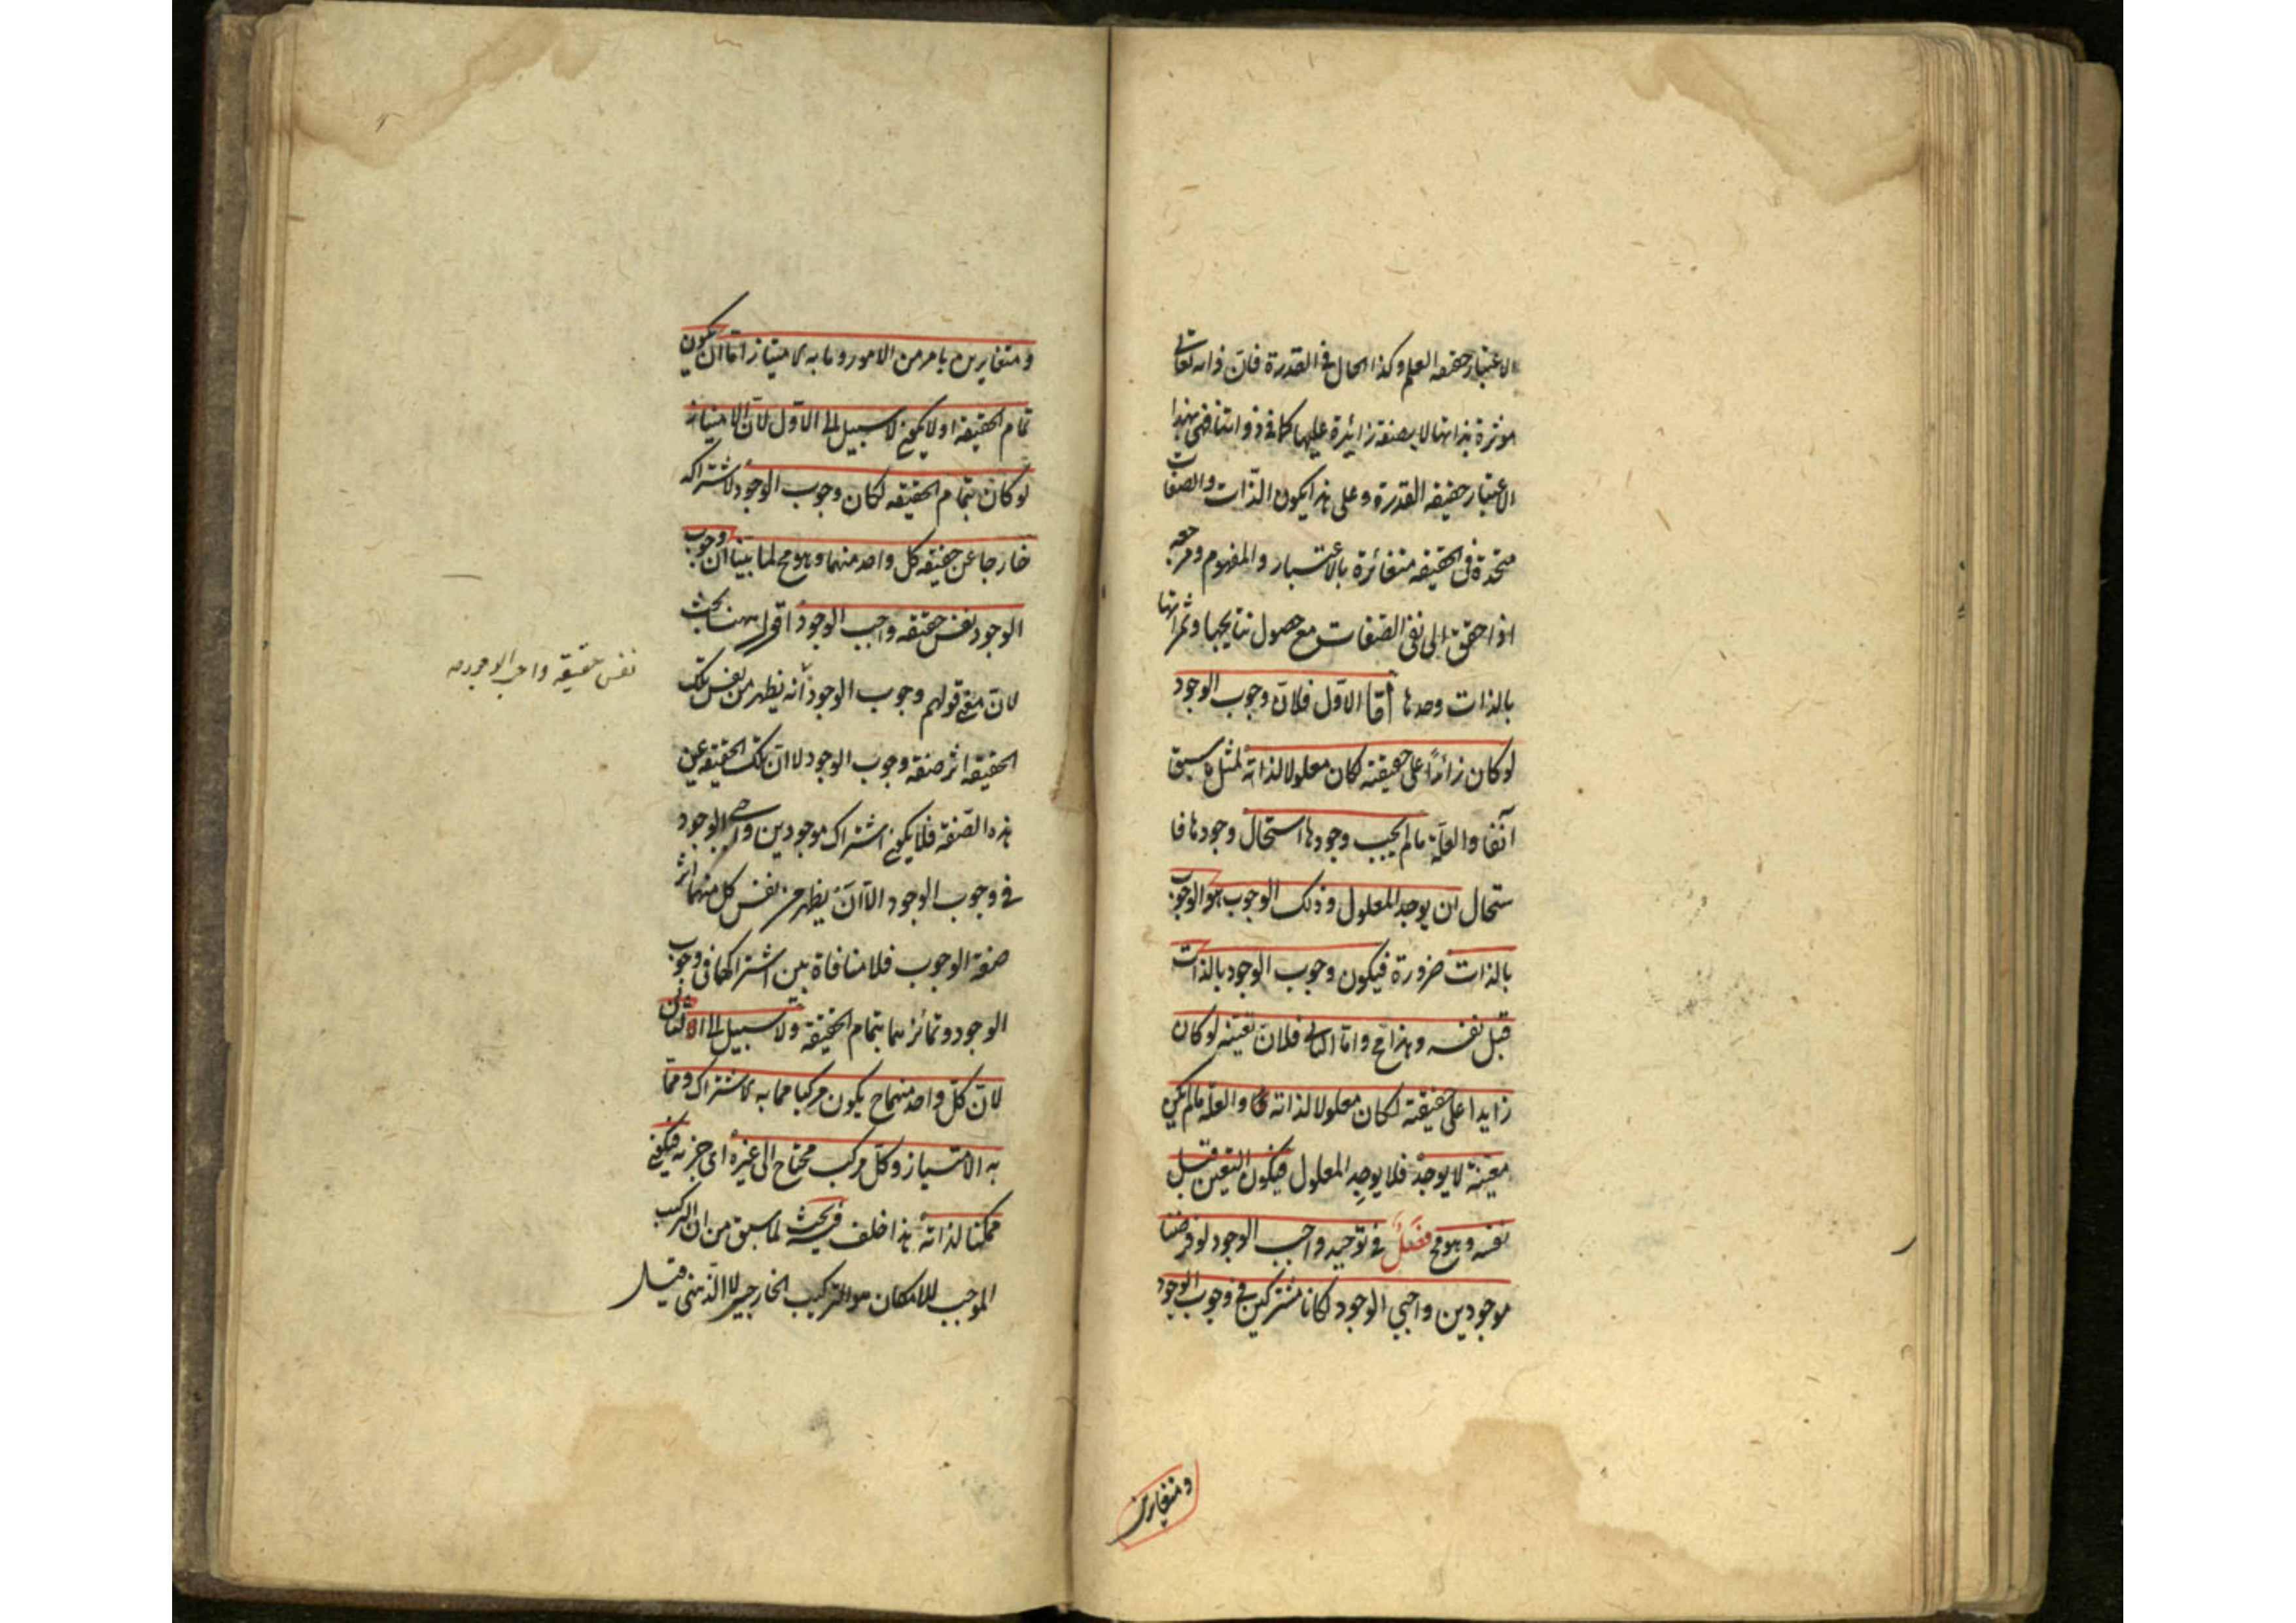 الاعتبار حقيقه العلم وكذا الحال فى القدرة فان ذاته تعالى
موثرة بذاتها لا بصفة زائدة عليها كما فى ذواتنا فهى بهذا
الاعتبار حقيقه القدرة وعلى هذا يكون الذات والصفات
متحدة فى الحقيقه متغائرة بالاعتبار والمفهوم ومرجعه
اذا حقق الى نفى الصفات مع حصول نتايجها وثمراتها
بالذات وحدها أمّا الاوّل فلانّ وجوب الوجود
لو كان زائداً على حقيقته لكان معلولا لذاته لمثل ما سبق
آنفا والعلّة ما لم يجب وجودها استحال وجودها فا
ستحال ان يوجد المعلول وذلك الوجوب هو الوجوب
بالذات ضرورة فيكون وجوب الوجود بالذات
قبل نفسه وهذا مح وامّا الثانى فلانّ تعيّنه لو كان
زايدا على حقيقته لكان معلولا لذاته والعلّة ما لم يكن
معيّنة لا يوجد فلا يوجد المعلول فيكون التعين قبل
نفسه وهو مح فصل فى توحيد واجب الوجود لو فرضنا
موجودين واجبى الوجود لكانا مشتركين فى وجوب الوجود
ومتغايرين
ومتغايرين بامر من الامور وما به الامتياز امّا ان يكون
تمام الحقيقة او لا يكون لا سبيل الى الاوّل لانّ الامتياز
لو كان بتمام الحقيقه لكان وجوب الوجود لاشتراكه
خارجا عن حقيقه كل واحد منهما وهو مح لما بيّنا ان وجوب
الوجود نفس حقيقه واجب الوجود اقول ههنا بحث
لانّ معنى قولهم وجوب الوجود أنه يظهر من نفس تلك
نفس حقيقة واجب الوجود
الحقيقه اثر صفة وجوب الوجود لا انّ تلك الحقيقة عين
هذه الصّفة فلا يكون اشتراك موجودين واجبى الوجود
فى وجوب الوجود الّا أن يظهر من نفس كل منهما اثر
صفة الوجوب فلا منافاة بين اشتراكهما فى وجوب
الوجود وتمائزهما بتمام الحقيقة ولا سبيل الى الثانى
لانّ كلّ واحد منهما ح يكون مركبا مما به الاشتراك وممّا
به الامتياز وكلّ مركب محتاج الى غيره اى جزئه فيكون
ممكنا لذاته هذا خلف فيه بحث لما سبق من ان التركيب
الموجب للامكان هو التركيب الخارجى لا الذّهنى قيل